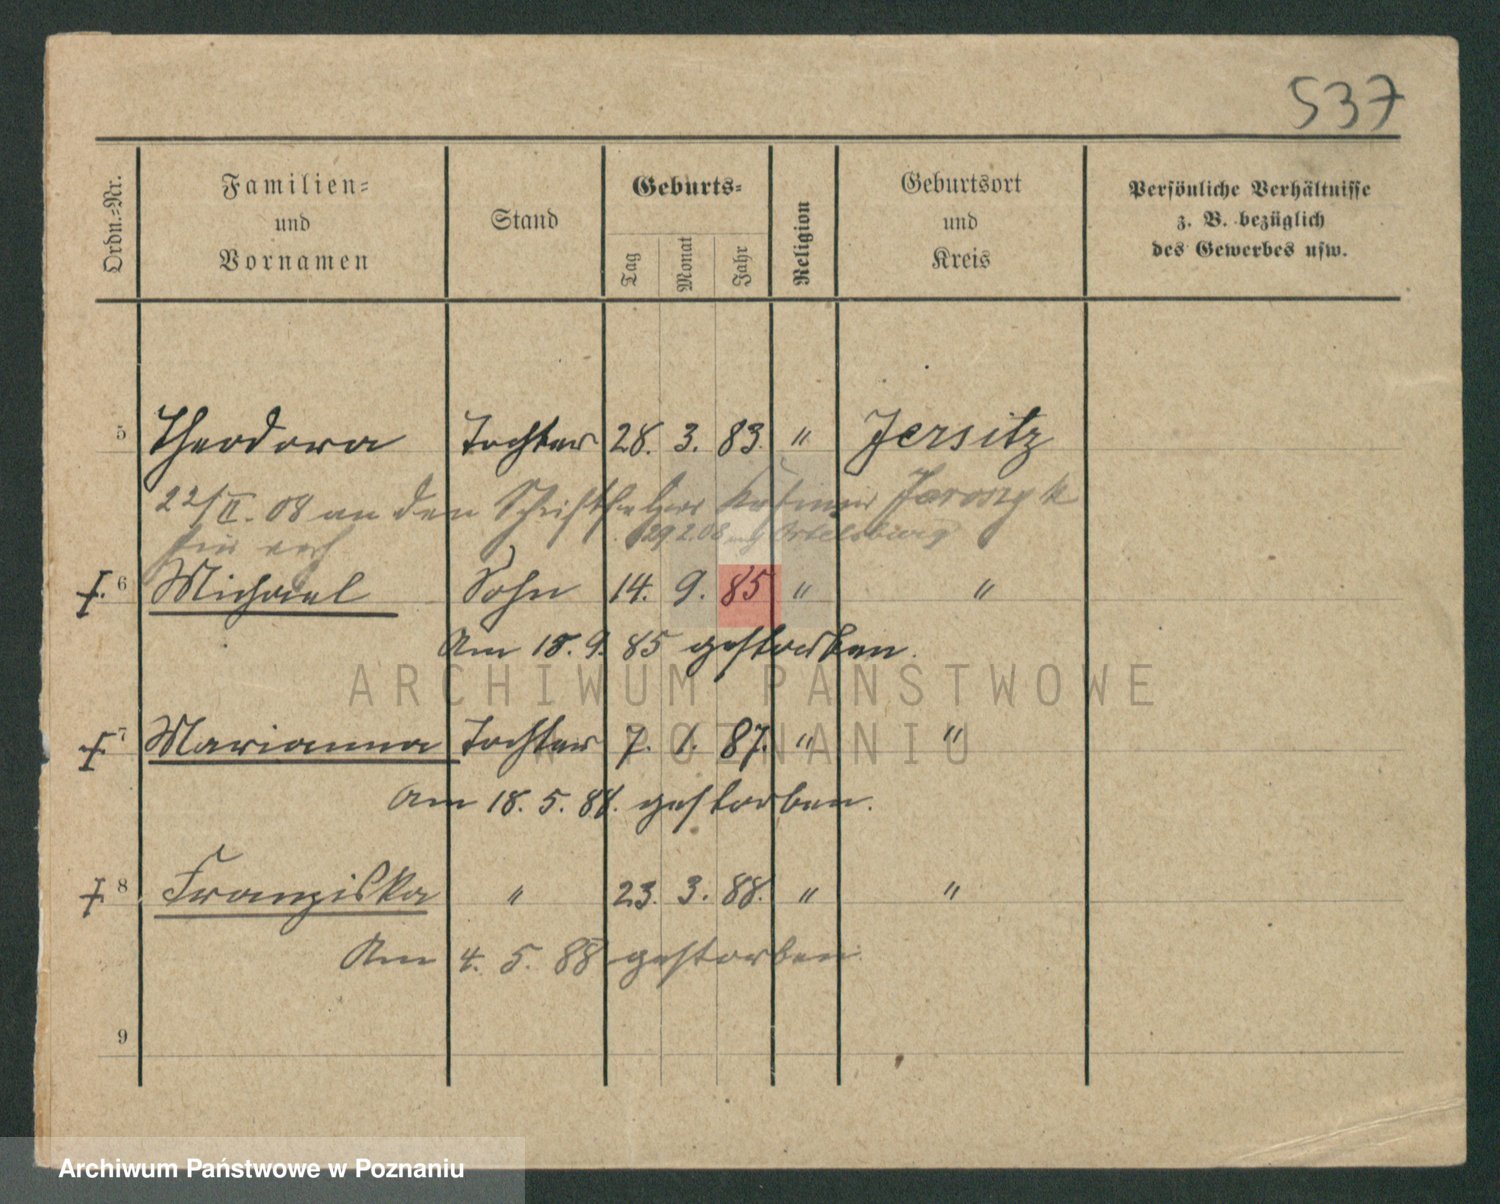 537
Ordn.-Nr.
Familien-
und
Vornamen
Stand
Geburts-
Tag
Monat
Jahr
Religion
Geburtsort
und
Kreis
Persönliche Verhältnisse
z. B. bezüglich
des Gewerbes usw.
5 Theodora Tochter 28. 3. 83. " Jersitz
22/II. 08 an den Schriftsetzer Kasimir
29.2.08 Ortelsburg
hier verh
6 Michael Sohn 14. 9. 85 " "
Am 18. 9. 85 gestorben.
ARCHIWUM PAŃSTWOWE
W POZNANIU
7 Marianna Tochter 7. 1. 87. " "
Am 18. 5. 88. gestorben.
8 Franziska " 23. 3. 88. " "
Am 4. 5. 88 gestorben.
9
Archiwum Państwowe w Poznaniu